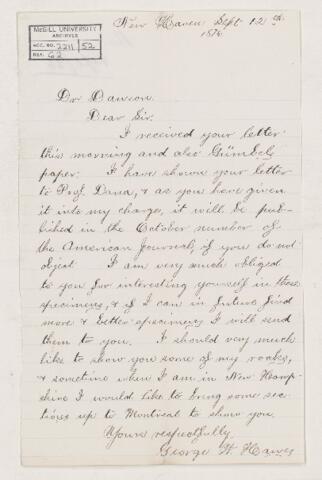 McGILL UNIVERSITY
ARCHIVES
ACC. NO. 2211 52
REF. 62
New Haven Sept 12th
1876.
Dr Dawson.
Dear Sir.
I received your letter
this morning and also Gümbels
paper. I have shown your letter
to Prof. Dana, & as you have given
it into my charge, it will be pub-
lished in the October number of
the American Journal, if you do not
object. I am very much obliged
to you for interesting yourself in these
specimens, & if I can in future find
more & better specimens I will send
them to you. I should very much
like to show you some of my rocks,
& sometime when I am in New Hamp-
shire I would like to bring some sec-
tions up to Montreal to show you.
Yours respectfully
George W. Hawes